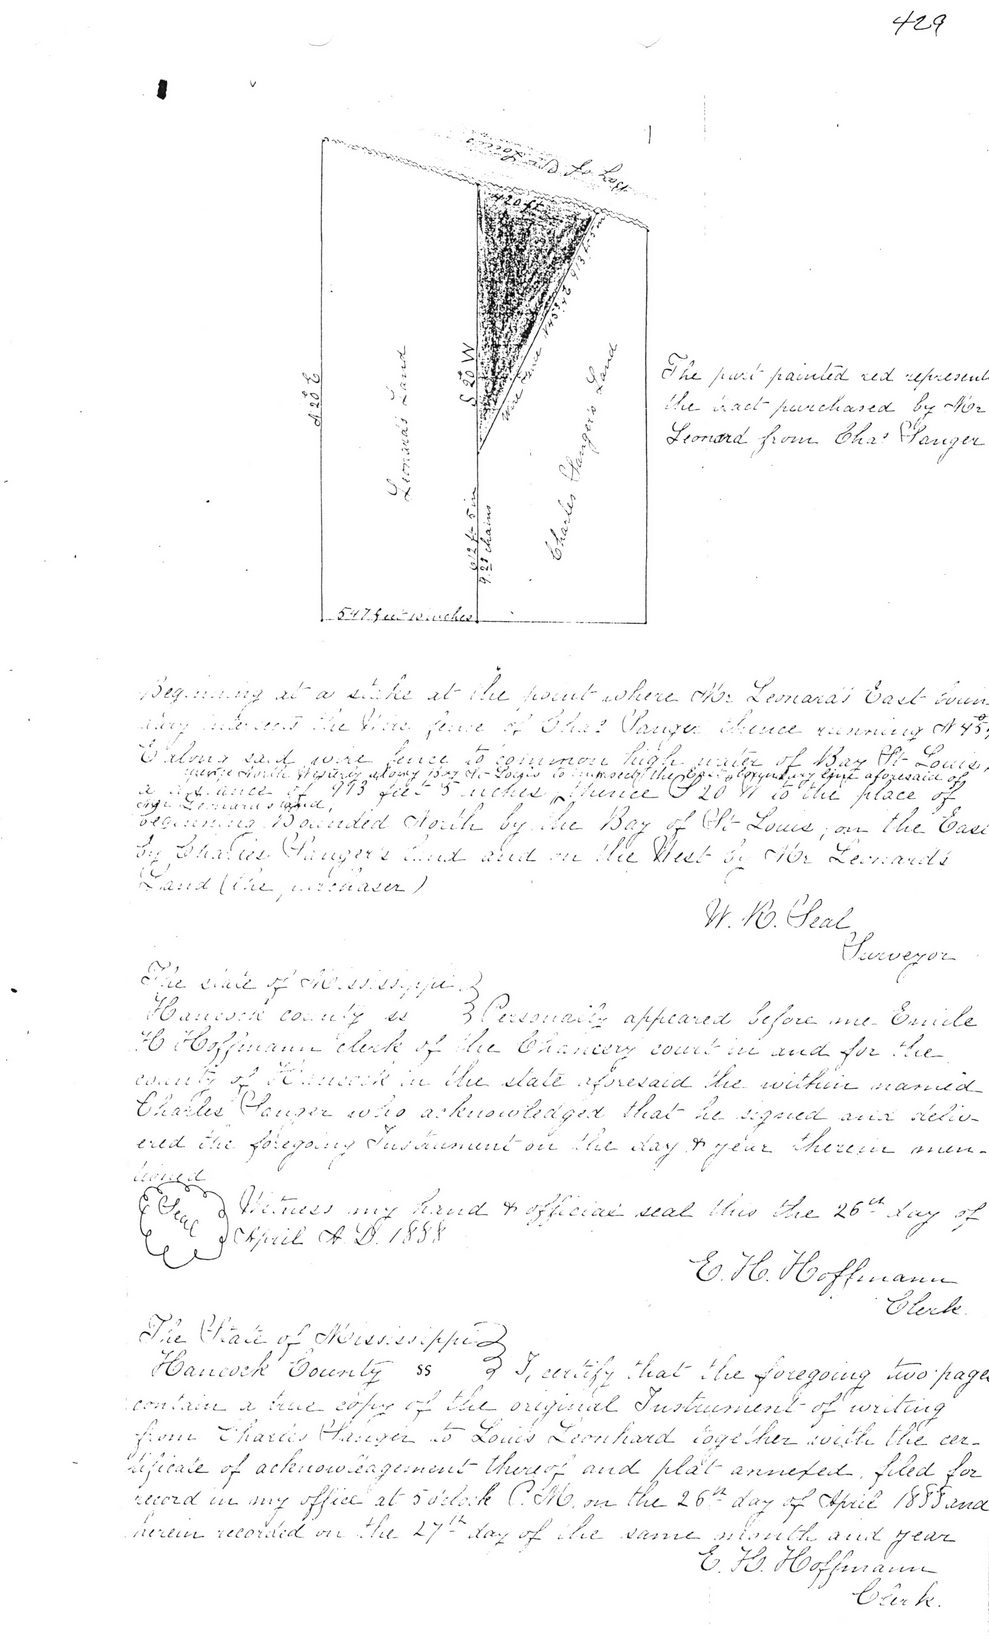 429
420 ft
N 20 E
Leonard's Land
S 20 W
Wire Fence N 45 3/4 E 913 ft 5 in
Charles Sanger's Land
612 ft 5 in
9.28 chains
547 feet 10 inches
The part painted red represent
the tract purchased by Mr
Leonard from Chas Sanger
Beginning at a stake at the point where Mr Leonard's East boun
dary intersects the Wire fence of Chas Sanger thence running N 45
E along said wire fence to common high water of Bay St Louis,
thence North Westerly along Bay St Louis to intersect the East boundary line aforesaid of
a distance of 913 feet 5 inches, thence S 20 W to the place of
Leonard's land,
beginning Bounded North by the Bay of St Louis, on the East
by Charles Sanger's land and on the West by Mr Leonard's
Land (the purchaser)
W. R. Seal
Surveyor
The state of Mississippi
Hancock county ss Personally appeared before me Emile
H Hoffmann clerk of the Chancery court in and for the
county of Hancock in the state aforesaid the within named
Charles Sanger who acknowledged that he signed and deliv-
ered the foregoing Instrument on the day & year therein men-
tioned
Seal Witness my hand & official seal this the 26th day of
April A.D. 1888
E. H. Hoffmann
Clerk.
The State of Mississippi
Hancock County ss I, certify that the foregoing two page
contain a true copy of the original Instrument of writing
from Charles Sanger to Louis Leonhard together with the cer-
tificate of acknowledgement thereof and plat annexed, filed for
record in my office at 5 o'clock P.M. on the 26th day of April 1888 and
herein recorded on the 27th day of the same month and year
E. H. Hoffmann
Clerk.